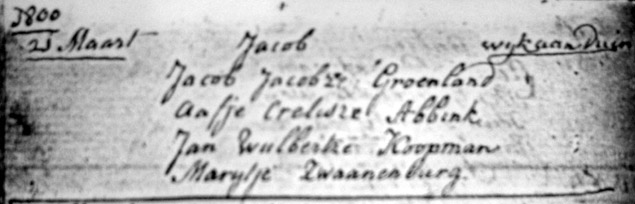 1800
21 Maart Jacob wyk aan Duin
Jacob Jacobze Groenland
Aafje Crelisze Abbink
Jan Wulbertze Koopman
Marytje Zwaanenburg.